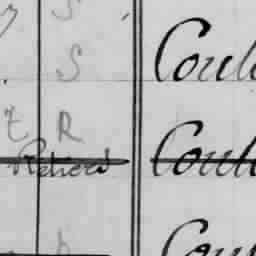 S
S Coul
t R
Retired Coul
Cou